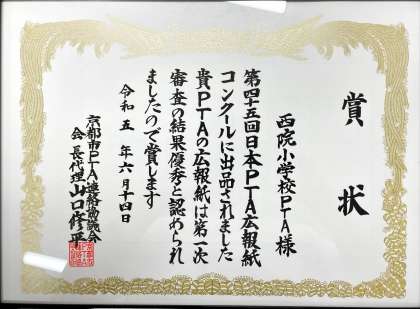 賞状
西院小学校PTA様
第四十五回日本PTA広報紙
コンクールに出品されました
貴PTAの広報紙は第一次
審査の結果優秀と認められ
ましたので賞します
令和五年六月十四日
京都市PTA連絡協議会
会長代理 山口修平